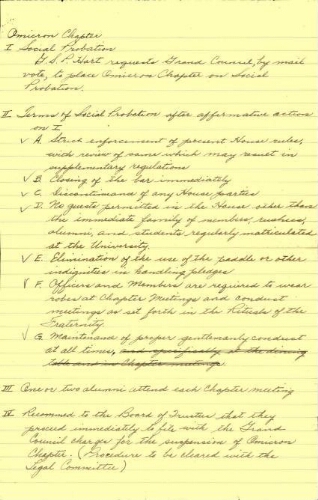 Omicron Chapter
I Social Probation
G.S.P. Hart requests Grand Counsel, by mail
vote, to place Omicron Chapter on Social
Probation.
II Terms of Social Probation after affirmative action
on I
✓ A. Strict enforcement of present House rules,
with review of same which may result in
supplementary regulations
✓ B. Closing of the bar immediately
✓ C. Discontinuand of any House parties
✓ D. No guests permitted in the House other than
the immediate family of members, rushees,
alumni, and students regularly matriculated
at the University.
✓ E. Elimination of the use of the paddle or other
indignities in handling pledges
✓ F. Officers and Members are required to wear
robes at Chapter Meetings and conduct
meetings as set forth in the Rituals of the
Fraternity
✓ G. Maintenand of proper gentlemanly conduct
at all times, and specifically at the dining
table and in Chapter meetings
III One or two alumni attend each Chapter meeting
IV Recommed to the Board of Trustees that they
proceed immediately to file with the Grand
Council charges for the suspension of Omicron
Chapter. (Procedure to be cleared with the
Legal Committee)